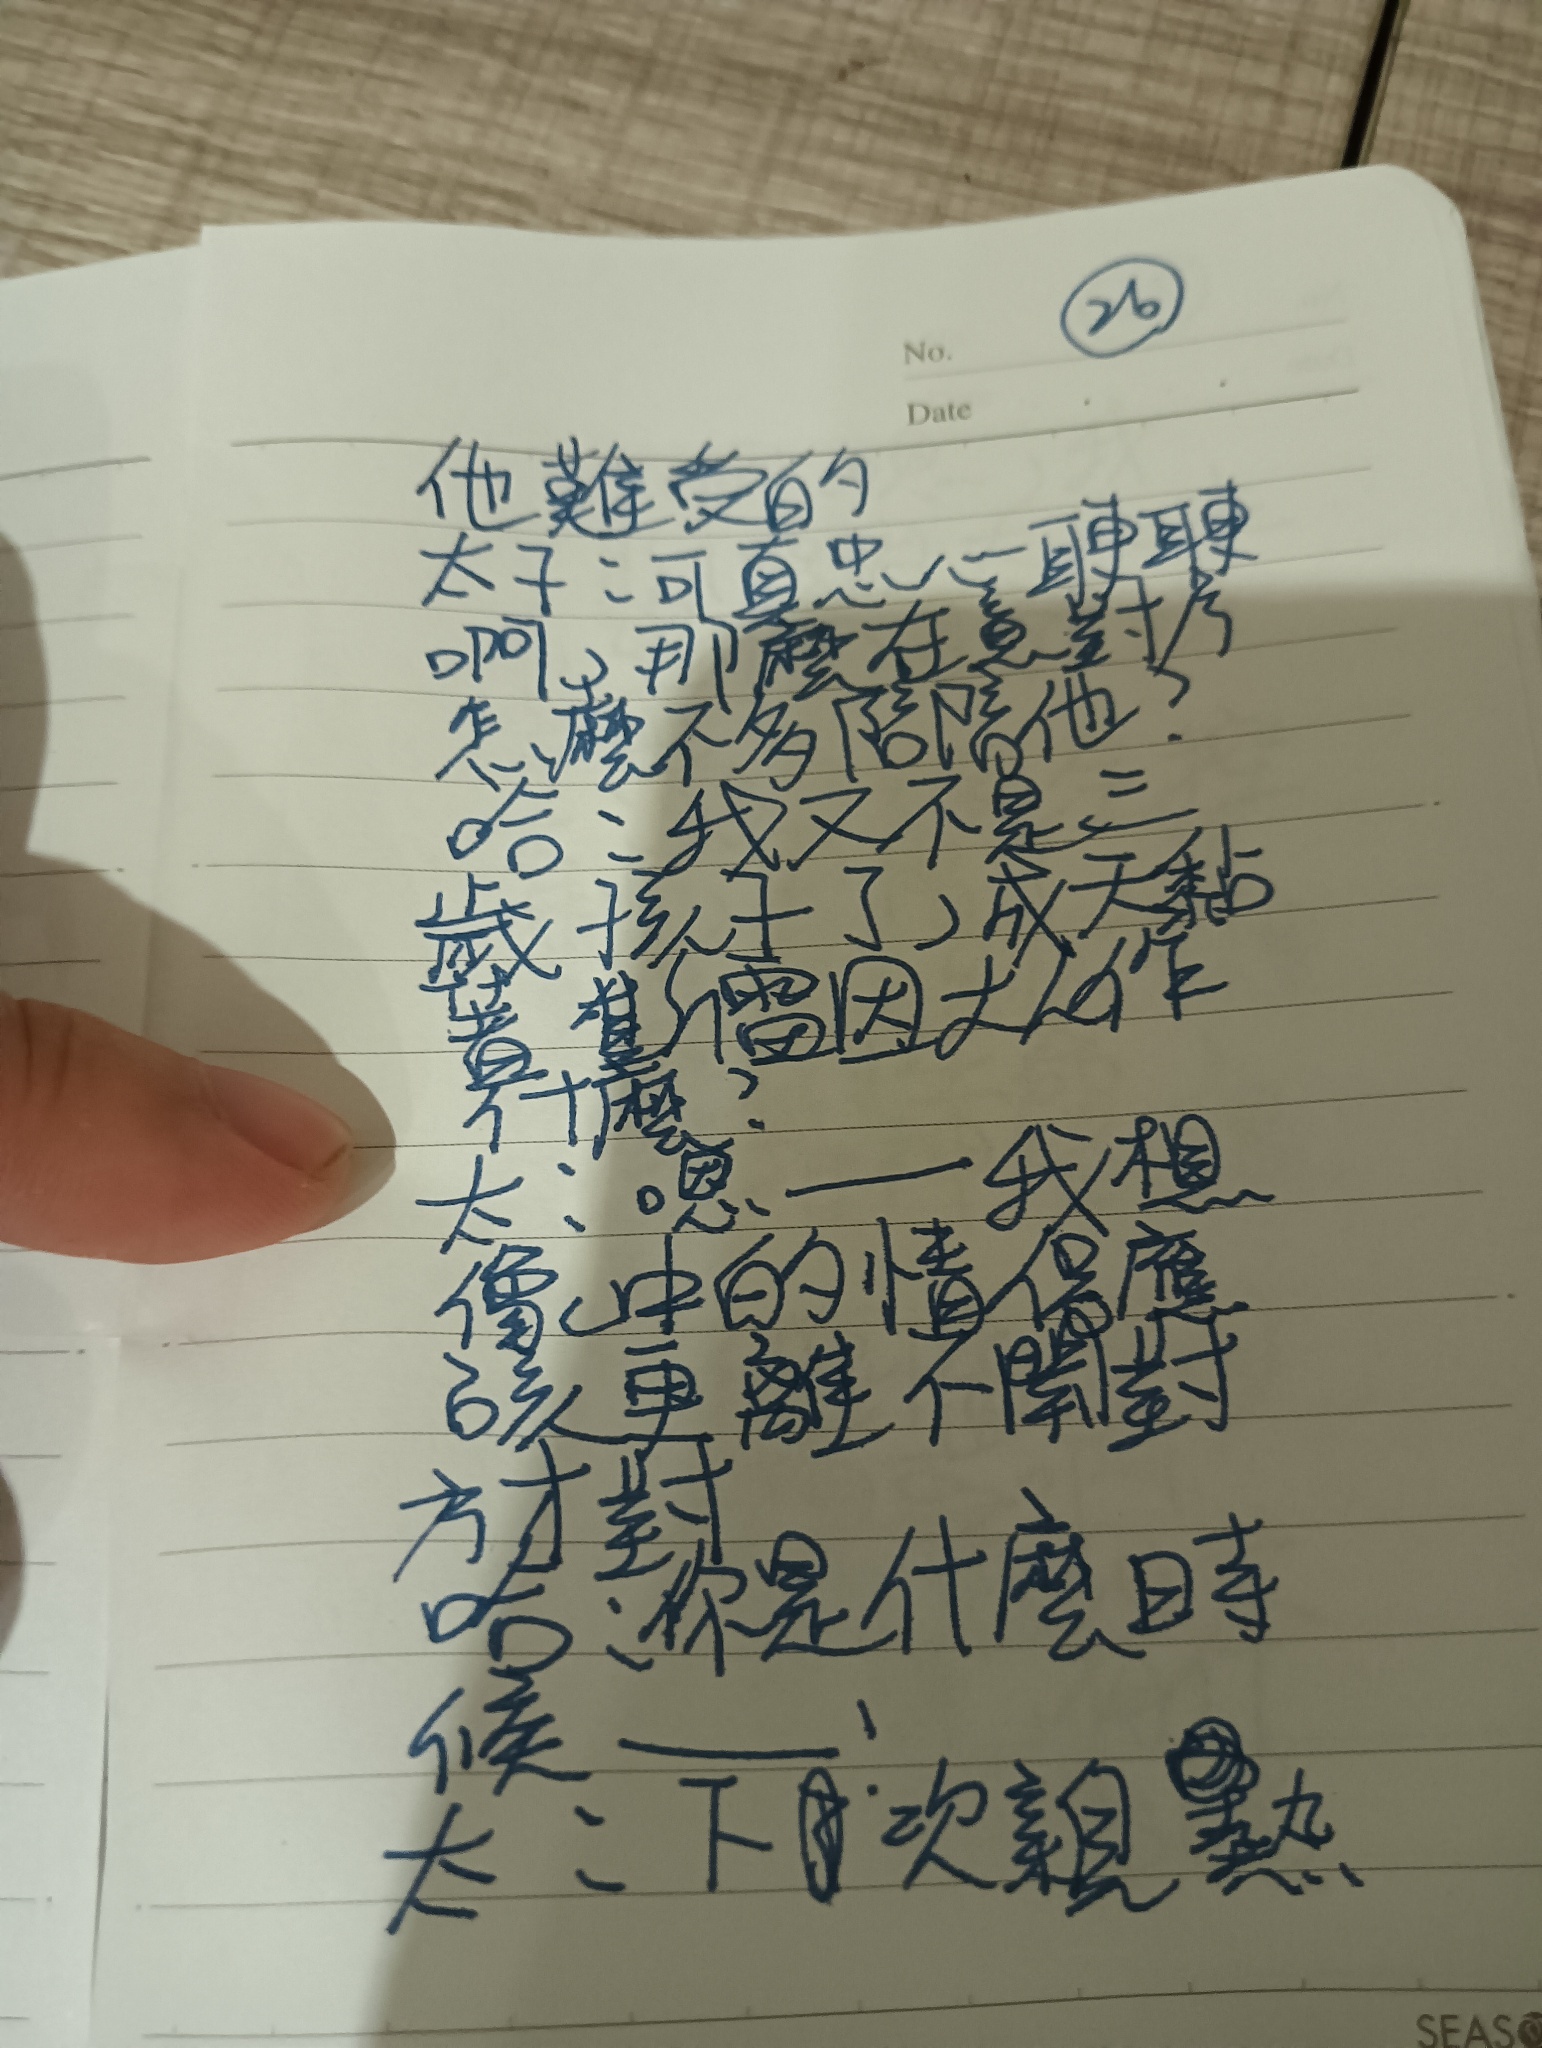 26
No.
Date
他難受的
太子：可真忠心耿耿
啊，那麼在意對方
怎麼不多陪陪他？
哈：我又不是三
歲孩子了，成天黏
著 雷因大人作
什麼？
太：嗯——我想
價中的情侶應
該更離不開對
方才對
哈：你是什麼時
候——！
太：下次親熱
SEASO